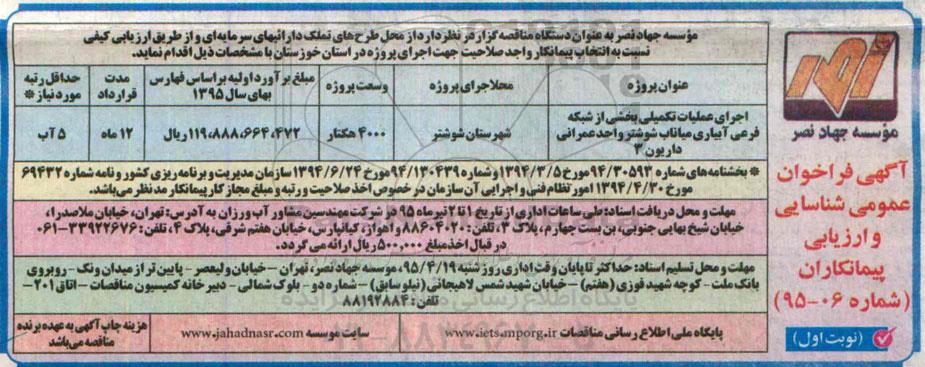 نصر
مؤسسه جهاد نصر
آگهی فراخوان
عمومی شناسایی
و ارزیابی
پیمانکاران
(شماره ۰۶-۹۵)
(نوبت اول)
مؤسسه جهاد نصر به عنوان دستگاه مناقصه گزار در نظر دارد از محل طرح های تملک دارائیهای سرمایه ای و از طریق ارزیابی کیفی
نسبت به انتخاب پیمانکار واجد صلاحیت جهت اجرای پروژه در استان خوزستان با مشخصات ذیل اقدام نماید.
عنوان پروژه
محل اجرای پروژه
وسعت پروژه
مبلغ برآورد اولیه براساس فهارس
بهای سال ۱۳۹۵
مدت
قرارداد
حداقل رتبه
مورد نیاز *
اجرای عملیات تکمیلی بخشی از شبکه
فرعی آبیاری میاناب شوشتر واحد عمرانی
داریون ۳
شهرستان شوشتر
۴۰۰۰ هکتار
۱۱۹،۸۸۸،۶۶۴،۴۷۲ ریال
۱۲ ماه
۵ آب
* بخشنامه های شماره ۹۴/۳۰۵۹۳ مورخ ۱۳۹۴/۳/۵ و شماره ۹۴/۱۳۰۴۳۹ مورخ ۱۳۹۴/۶/۲۴ سازمان مدیریت و برنامه ریزی کشور و نامه شماره ۶۹۴۳۲
مورخ ۱۳۹۴/۴/۳۰ امور نظام فنی و اجرایی آن سازمان در خصوص اخذ صلاحیت و رتبه و مبلغ مجاز کار پیمانکار مد نظر می باشد.
مهلت و محل دریافت اسناد: طی ساعات اداری از تاریخ ۱ تا ۲ تیر ماه ۹۵ در شرکت مهندسین مشاور آب ورزان به آدرس: تهران، خیابان ملاصدرا،
خیابان شیخ بهایی جنوبی، بن بست چهارم، پلاک ۳، تلفن: ۸۸۶۰۴۰۲۰ و اهواز، کیانپارس، خیابان هفتم شرقی، پلاک ۴، تلفن: ۳۳۹۲۲۶۷۶-۰۶۱
در قبال اخذ مبلغ ۵۰۰,۰۰۰ ریال ارائه می گردد.
مهلت و محل تسلیم اسناد: حداکثر تا پایان وقت اداری روز شنبه ۹۵/۴/۱۹، موسسه جهاد نصر، تهران - خیابان ولیعصر - پایین تر از میدان ونک - روبروی
بانک ملت - کوچه شهید فوزی (هفتم) - خیابان شهید شمس لاهیجانی (نیلو سابق) - شماره دو - بلوک شمالی - دبیرخانه کمیسیون مناقصات - اتاق ۲۰۱-
تلفن: ۸۸۱۹۲۸۸۴
پایگاه ملی اطلاع رسانی مناقصات www.iets.mporg.ir
سایت موسسه www.jahadnasr.com
هزینه چاپ آگهی به عهده برنده
مناقصه می باشد